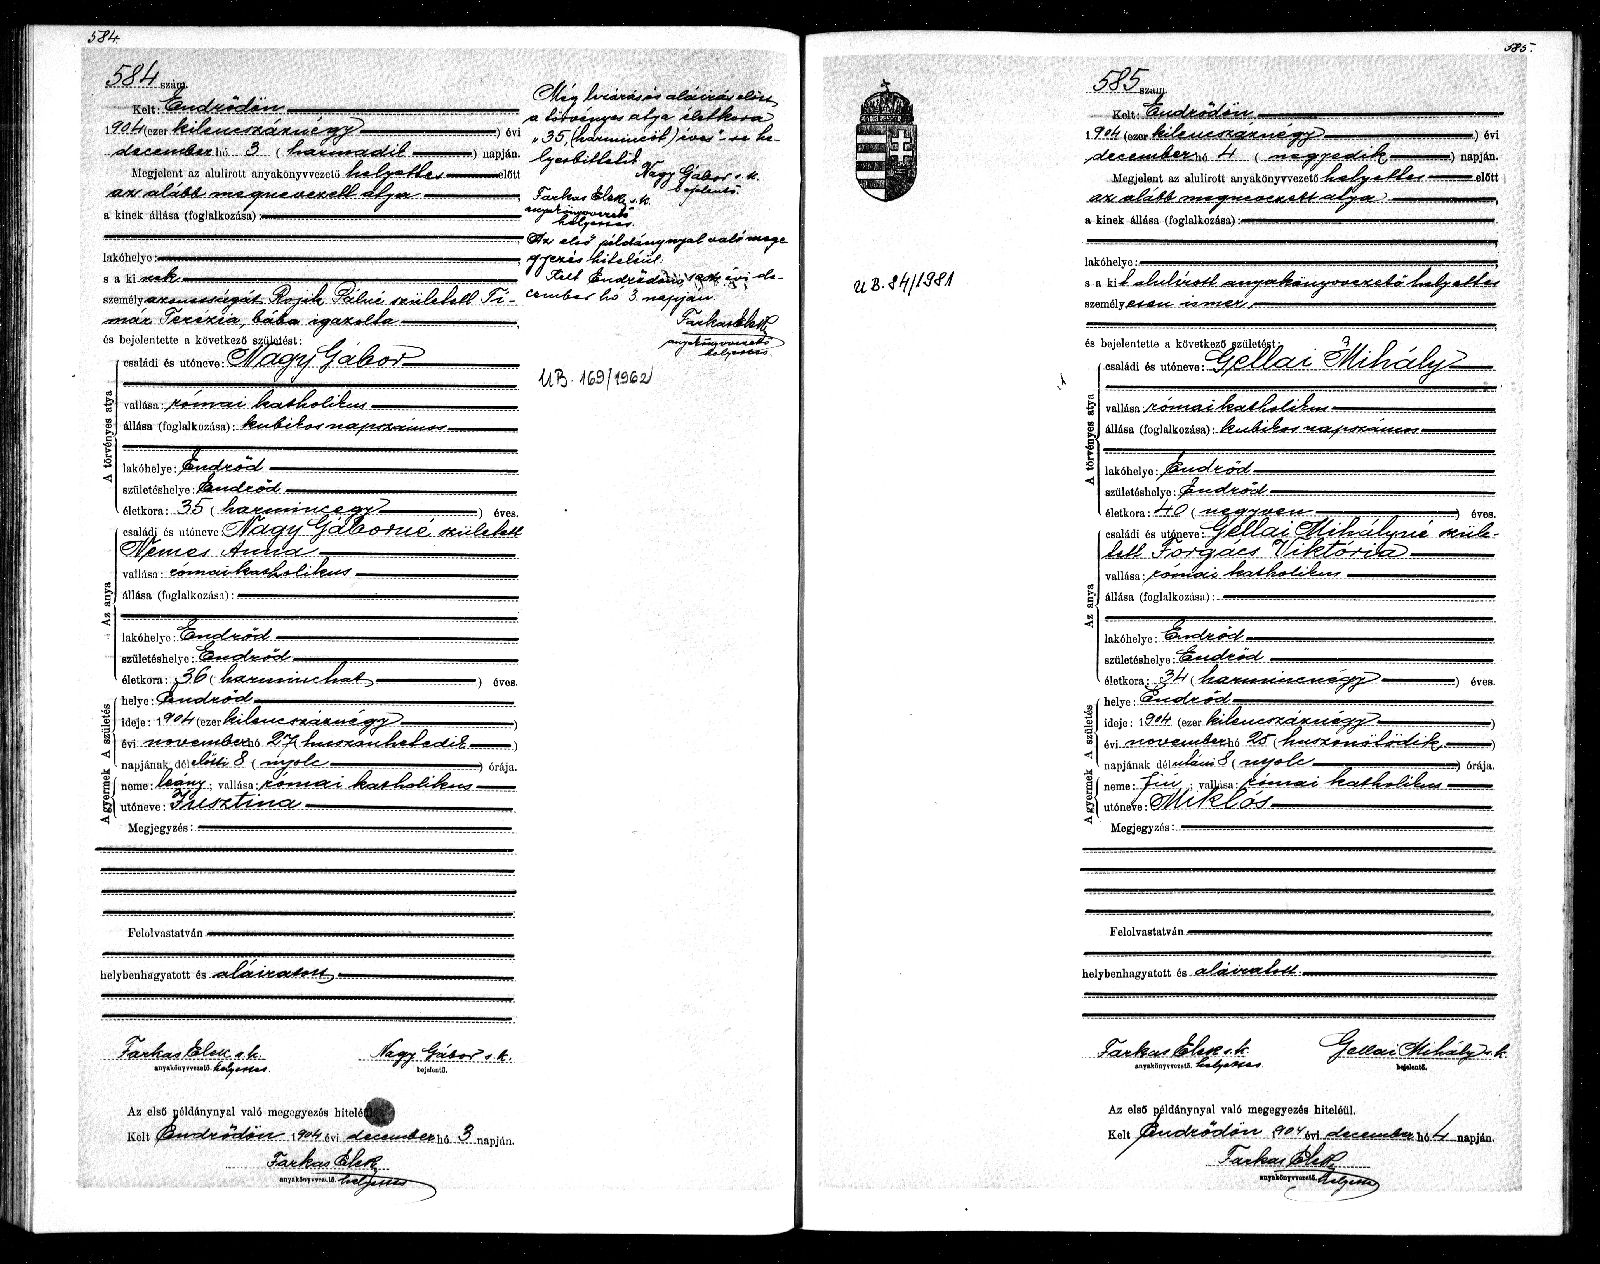 584.
584 szám.
Kelt: Endrődön
1904 (ezer kilencszáznégy) évi
december hó 3 (harmadik) napján.
Megjelent az alulirott anyakönyvvezető helyettes előtt
az alább megnevezett atya
a kinek állása (foglalkozása):
lakóhelye:
s a kinek
személyazonosságát Rojik Pálné született Ti-
már Terézia, bába igazolta
és bejelentette a következő születést:
A törvényes atya
családi és utóneve: Nagy Gábor
vallása: római katholikus
állása (foglalkozása): kubikos napszámos
lakóhelye: Endrőd
születéshelye: Endrőd
életkora: 35 (harmincegy) éves.
Az anya
családi és utóneve Nagy Gáborné született
Nemes Anna
vallása: római katholikus
állása (foglalkozása):
lakóhelye: Endrőd
születéshelye: Endrőd
életkora: 36 (harminchat) éves.
A születés
helye: Endrőd
ideje: 1904 (ezer kilencszáznégy)
évi november hó 27 (huszonhetedik)
napjának délelőtti 8 (nyolc) órája.
A gyermek
neme: leány; vallása: római katholikus
utóneve: Krisztina
Megjegyzés:
Felolvastatván
helybenhagyatott és aláiratott
Farkas Elek s.k. Nagy Gábor s.k.
anyakönyvvezető. helyettes bejelentő.
Az első példánynyal való megegyezés hiteléül.
Kelt Endrődön 1904 évi december hó 3 napján.
Farkas Elek
anyakönyvvezető. helyettes
Még lezárás és aláírás előtt
a törvényes atya életkora
„35 (harmincöt) éves"-re he-
lyesbittetik
Nagy Gábor s.k.
bejelentő.
Farkas Elek s.k.
anyakönyvvezető
helyettes.
Az első példánynyal való mege-
gyezés hiteléül.
Kelt Endrődön 1904 évi de-
cember hó 3. napján.
Farkas Elek
anyakönyvvezető
helyettes.
UB. 169/1962
585.
UB. 84/1981
585 szám.
Kelt: Endrődön
1904 (ezer kilencszáznégy) évi
december hó 4 (negyedik) napján.
Megjelent az alulirott anyakönyvvezető helyettes előtt
az alább megnevezett atya
a kinek állása (foglalkozása):
lakóhelye:
s a kit alulírott anyakönyvvezető helyettes
személyesen ismer,
és bejelentette a következő születést:
A törvényes atya
családi és utóneve: Gellai Mihály
vallása: római katholikus
állása (foglalkozása): kubikos napszámos
lakóhelye: Endrőd
születéshelye: Endrőd
életkora: 40 (negyven) éves.
Az anya
családi és utóneve: Gellai Mihályné szüle-
tett Forgács Viktória
vallása: római katholikus
állása (foglalkozása):
lakóhelye: Endrőd
születéshelye: Endrőd
életkora: 34 (harmincnégy) éves.
A születés
helye: Endrőd
ideje: 1904 (ezer kilencszáznégy)
évi november hó 25 (huszonötödik)
napjának délutáni 8 (nyolc) órája.
A gyermek
neme: fiú; vallása: római katholikus
utóneve: Miklós
Megjegyzés:
Felolvastatván
helybenhagyatott és aláiratott
Farkas Elek s.k. Gellai Mihály s.k.
anyakönyvvezető. helyettes bejelentő.
Az első példánynyal való megegyezés hiteléül.
Kelt Endrődön 1904 évi december hó 4 napján.
Farkas Elek
anyakönyvvezető. helyettes